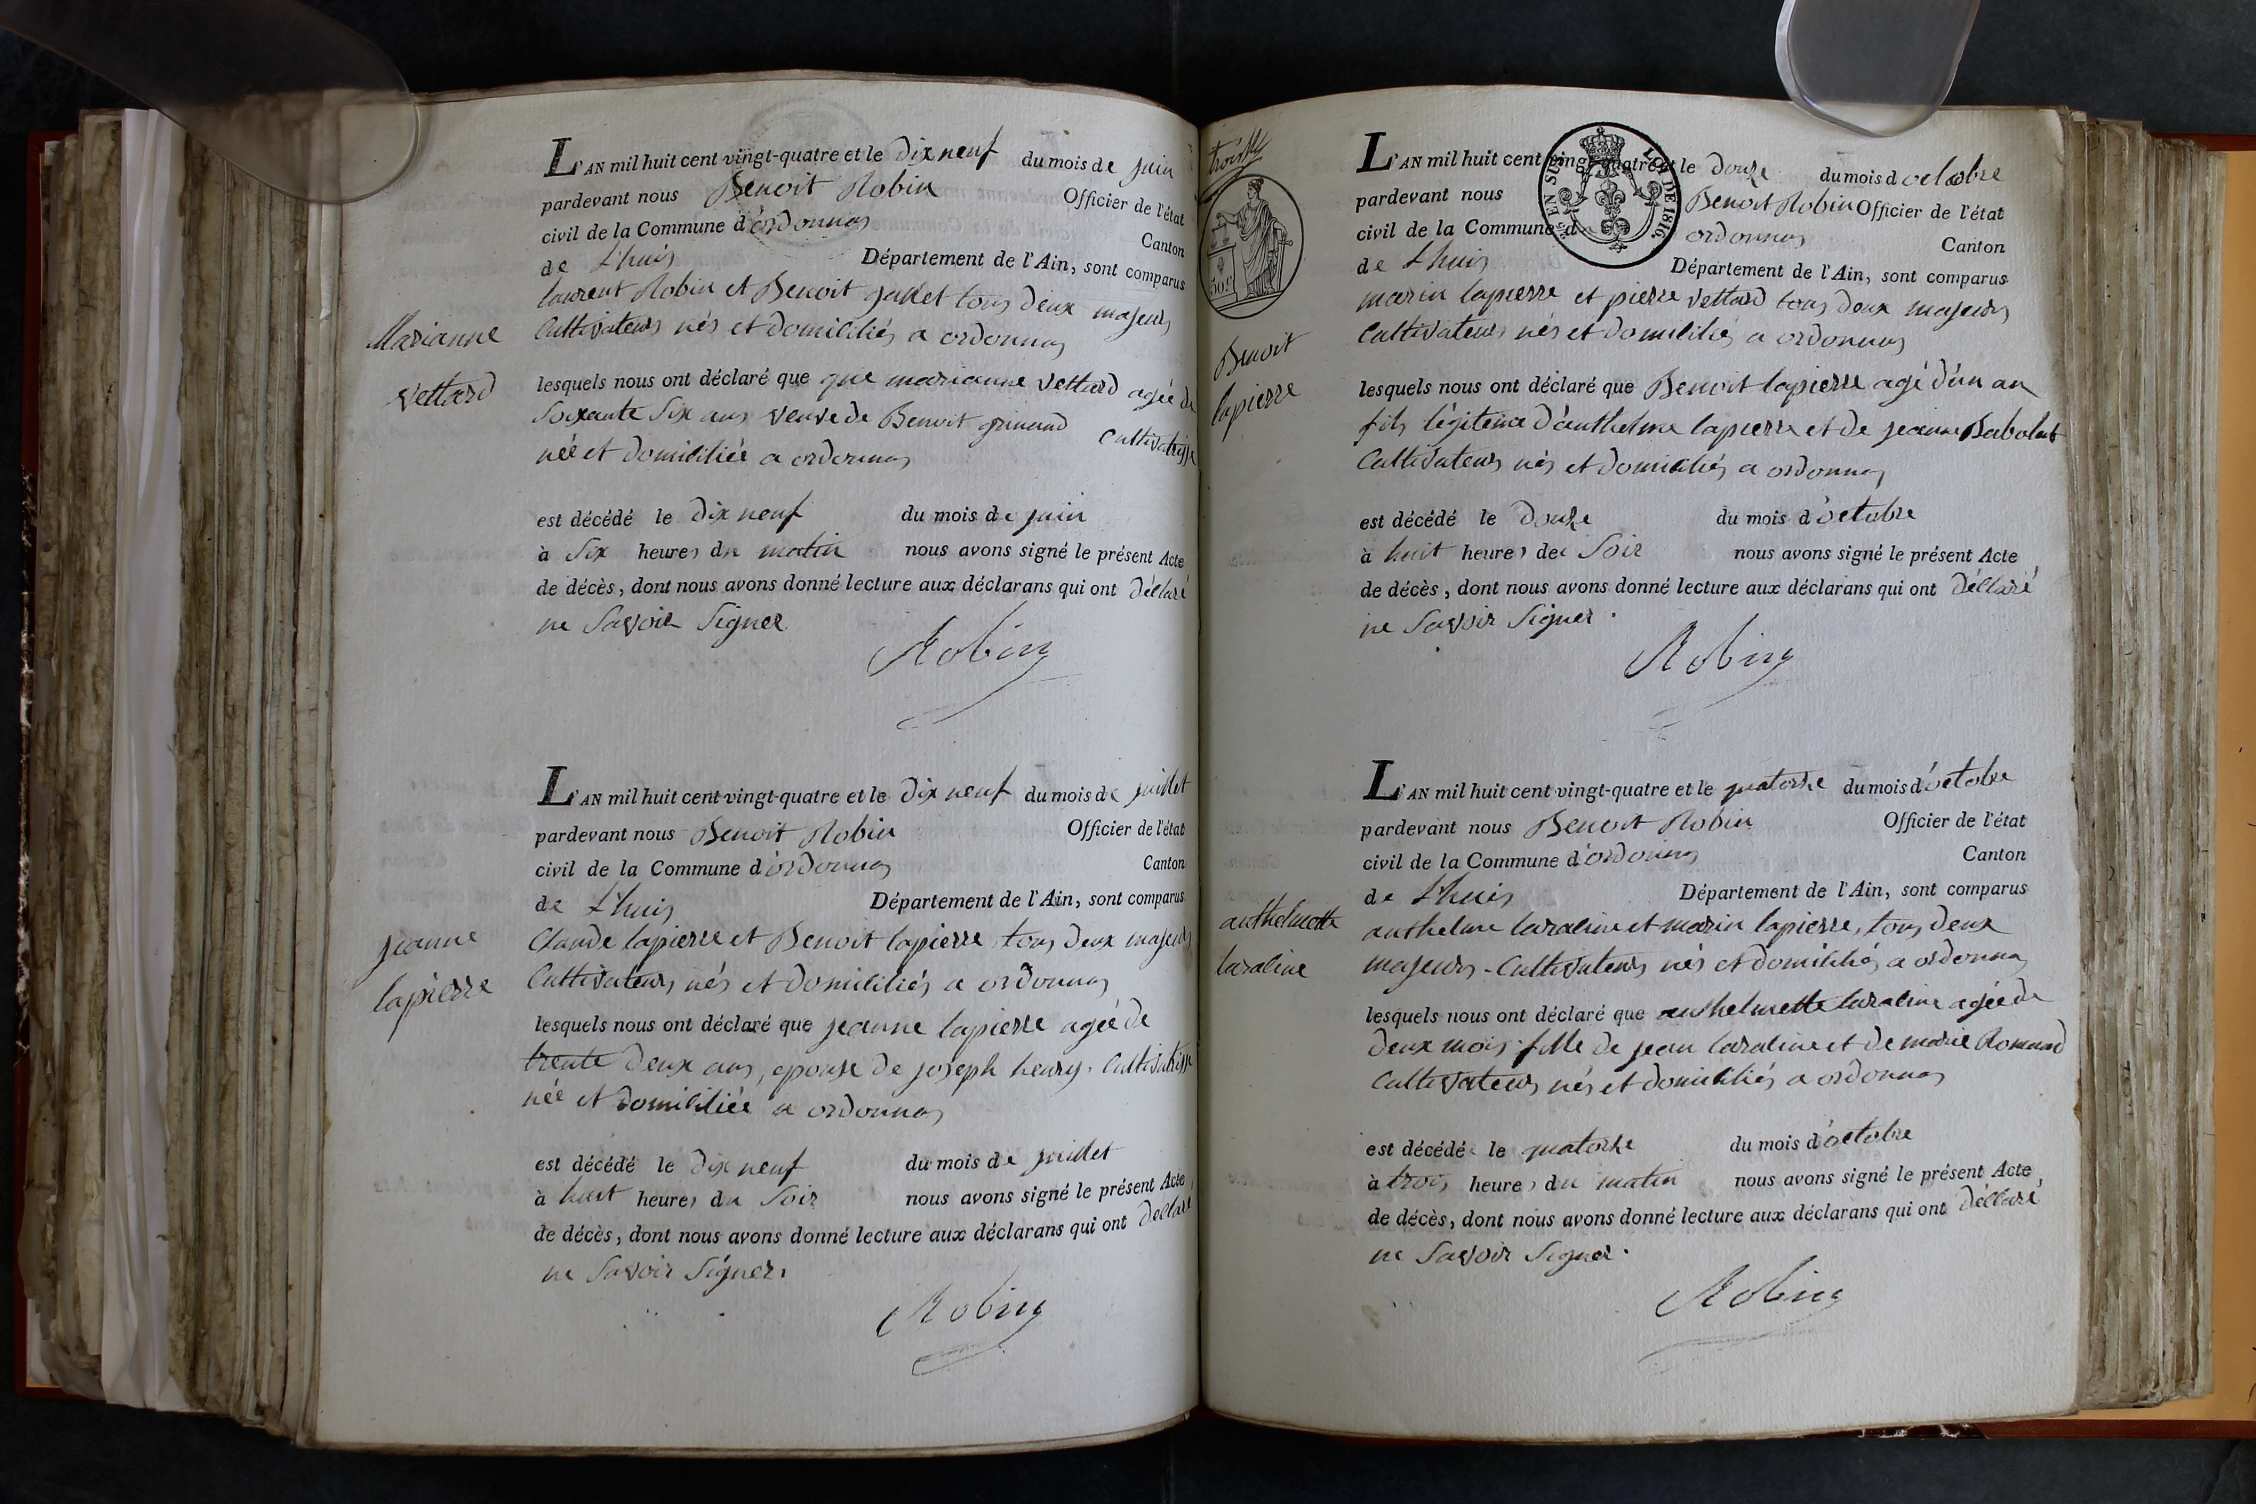 L'AN mil huit cent vingt-quatre et le dix neuf du mois de juin
pardevant nous Benoit Robin Officier de l'état
civil de la Commune d'ordonnas Canton
de Lhuis Département de l'Ain, sont comparus
laurent Robin et Benoit jallet tous deux majeurs
Cultivateurs nés et domiciliés a ordonnas
Marianne
Vettard
lesquels nous ont déclaré que que marianne Vettard agée de
Soixante Six ans veuve de Benoit Cultivatrisse
née et domiciliée a ordonnas
est décédé le dix neuf du mois de juin
à Six heures du matin nous avons signé le présent Acte
de décès, dont nous avons donné lecture aux déclarans qui ont déclaré
ne Savoir Signer
Robin
L'AN mil huit cent vingt-quatre et le dix neuf du mois de juillet
pardevant nous Benoit Robin Officier de l'état
civil de la Commune d'ordonnas Canton
de Lhuis Département de l'Ain, sont comparus
Claude lapierre et Benoit lapierre, tous deux majeurs
Cultivateurs nés et domiciliés a ordonnas
jeanne
lapierre
lesquels nous ont déclaré que jeanne lapierre agée de
trente deux ans, epouse de joseph henry. Cultivatrisse
née et domiciliée a ordonnas
est décédé le dix neuf du mois de juillet
à huit heures du Soir nous avons signé le présent Acte
de décès, dont nous avons donné lecture aux déclarans qui ont déclaré
ne Savoir Signer.
Robin
EN SUS. LOI DE 1816.
30c
L'AN mil huit cent vingt-quatre et le douze du mois d octobre
pardevant nous Benoit Robin Officier de l'état
civil de la Commune d ordonnas Canton
de Lhuis Département de l'Ain, sont comparus
marin lapierre et pierre Vettard tous deux majeurs
Cultivateurs nés et domiciliés a ordonnas
Benoit
lapierre
lesquels nous ont déclaré que Benoit lapierre agé d'un an
fils légitime d'anthelme lapierre et de jeanne Babolat
Cultivateurs nés et domiciliés a ordonnas
est décédé le douze du mois d'octobre
à huit heures de Soir nous avons signé le présent Acte
de décès, dont nous avons donné lecture aux déclarans qui ont déclaré
ne Savoir Signer.
Robin
L'AN mil huit cent vingt-quatre et le quatorze du mois d'octobre
pardevant nous Benoit Robin Officier de l'état
civil de la Commune d'ordonnas Canton
de Lhuis Département de l'Ain, sont comparus
anthelme laraline et marin lapierre, tous deux
majeurs - Cultivateurs nés et domiciliés a ordonnas
anthelmette
laraline
lesquels nous ont déclaré que anthelmette laraline agée de
deux mois. fille de jean laraline et de marie Romand
Cultivateurs nés et domiciliés a ordonnas
est décédé le quatorze du mois d'octobre
à trois heures du matin nous avons signé le présent Acte
de décès, dont nous avons donné lecture aux déclarans qui ont déclaré
ne Savoir Signer.
Robin